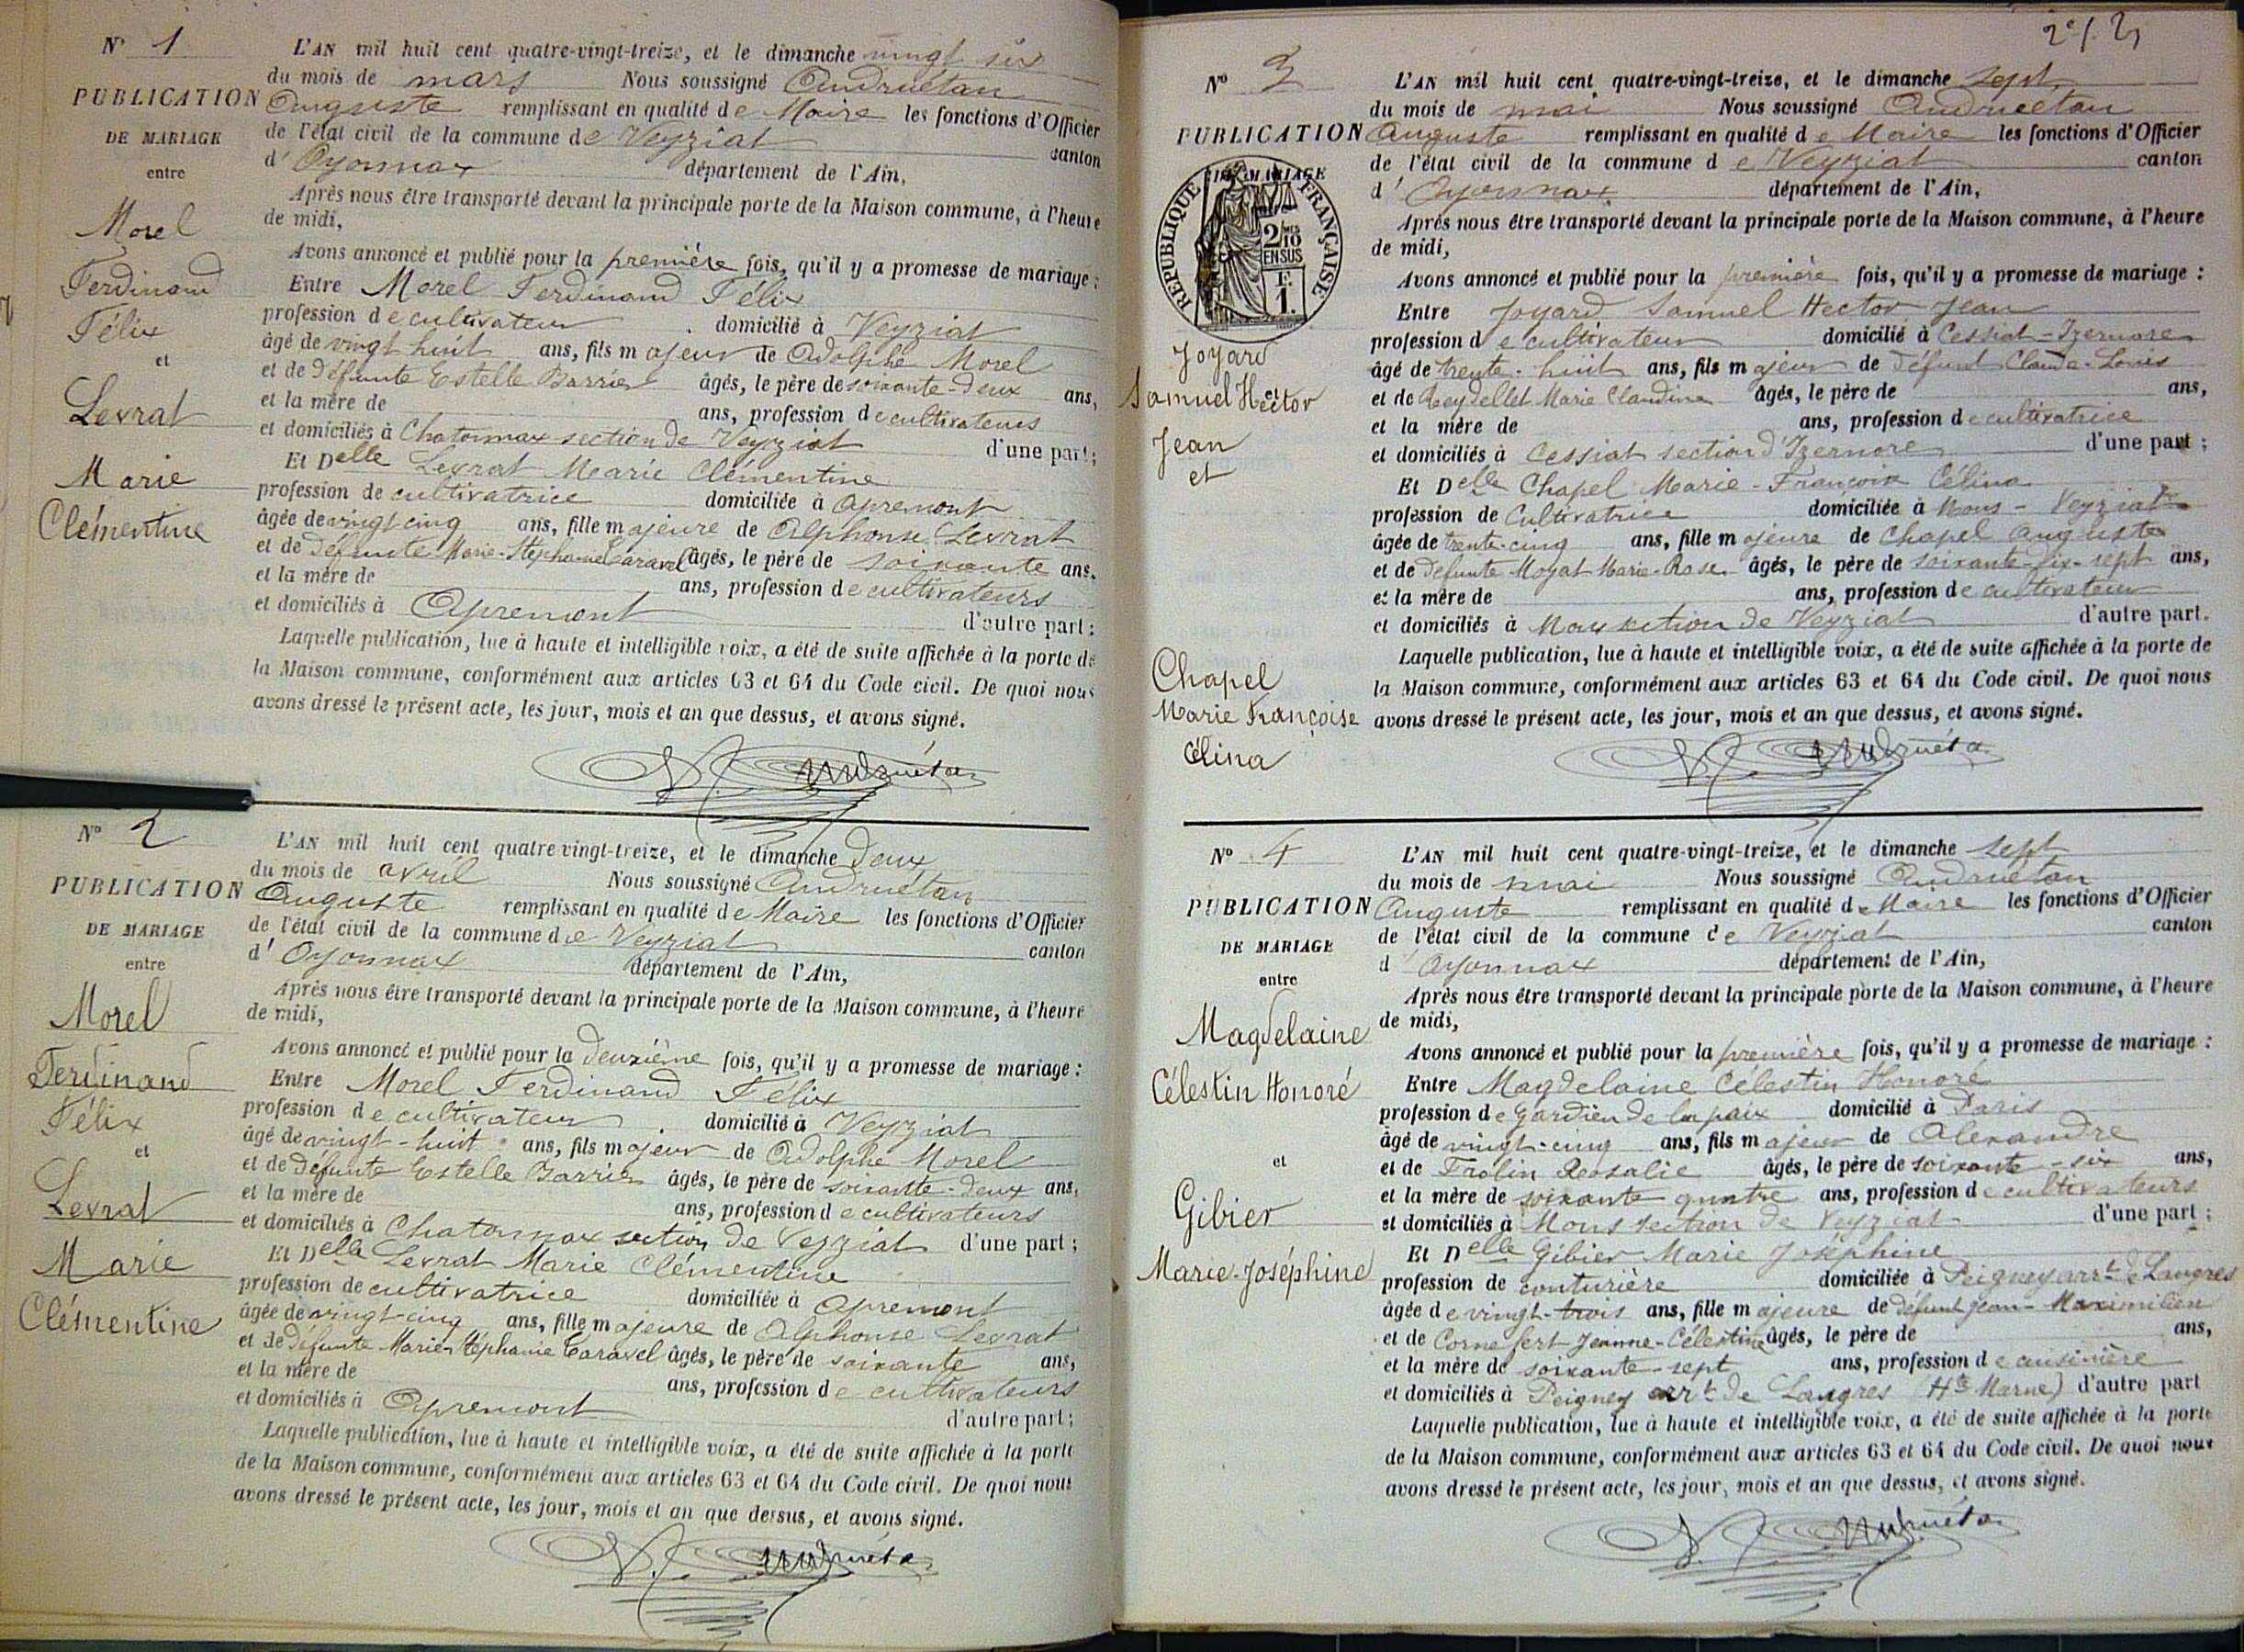 N° 1
PUBLICATION
DE MARIAGE
entre
Morel
Ferdinand
Félix
et
Levrat
Marie
Clémentine
L'AN mil huit cent quatre-vingt-treize, et le dimanche vingt six
du mois de mars Nous soussigné Andruétan
Auguste remplissant en qualité de Maire les fonctions d'Officier
de l'état civil de la commune de Veyziat canton
d'Oyonnax département de l'Ain,
Après nous être transporté devant la principale porte de la Maison commune, à l'heure
de midi,
Avons annoncé et publié pour la première fois, qu'il y a promesse de mariage :
Entre Morel Ferdinand Félix
profession de cultivateur domicilié à Veyziat
âgé de vingt huit ans, fils majeur de Adolphe Morel
et de défunte Estelle Barrier âgés, le père de soixante-deux ans,
et la mère de ans, profession de cultivateurs
et domiciliés à Chatonnax section de Veyziat d'une part ;
Et Delle Levrat Marie Clémentine
profession de cultivatrice domiciliée à Apremont
âgée de vingt cinq ans, fille majeure de Alphonse Levrat
et de défunte Marie-Stéphanie Caravel âgés, le père de soixante ans,
et la mère de ans, profession de cultivateurs
et domiciliés à Apremont d'autre part ;
Laquelle publication, lue à haute et intelligible voix, a été de suite affichée à la porte de
la Maison commune, conformément aux articles 63 et 64 du Code civil. De quoi nous
avons dressé le présent acte, les jour, mois et an que dessus, et avons signé.
Andruétan
N° 2
PUBLICATION
DE MARIAGE
entre
Morel
Ferdinand
Félix
et
Levrat
Marie
Clémentine
L'AN mil huit cent quatre-vingt-treize, et le dimanche deux
du mois de avril Nous soussigné Andruétan
Auguste remplissant en qualité de Maire les fonctions d'Officier
de l'état civil de la commune de Veyziat canton
d'Oyonnax département de l'Ain,
Après nous être transporté devant la principale porte de la Maison commune, à l'heure
de midi,
Avons annoncé et publié pour la deuxième fois, qu'il y a promesse de mariage :
Entre Morel Ferdinand Félix
profession de cultivateur domicilié à Veyziat
âgé de vingt-huit ans, fils majeur de Adolphe Morel
et de défunte Estelle Barrier âgés, le père de soixante-deux ans,
et la mère de ans, profession de cultivateurs
et domiciliés à Chatonnax section de Veyziat d'une part ;
Et Delle Levrat Marie Clémentine
profession de cultivatrice domiciliée à Apremont
âgée de vingt-cinq ans, fille majeure de Alphonse Levrat
et de défunte Marie-Stéphanie Caravel âgés, le père de soixante ans,
et la mère de ans, profession de cultivateurs
et domiciliés à Apremont d'autre part ;
Laquelle publication, lue à haute et intelligible voix, a été de suite affichée à la porte
de la Maison commune, conformément aux articles 63 et 64 du Code civil. De quoi nous
avons dressé le présent acte, les jour, mois et an que dessus, et avons signé.
Andruétan
N° 3
PUBLICATION
DE MARIAGE
REPUBLIQUE FRANÇAISE
2/10
EN SUS
F.
1.
Joyard
Samuel Hector
Jean
et
Chapel
Marie Françoise
Célina
L'AN mil huit cent quatre-vingt-treize, et le dimanche sept
du mois de mai Nous soussigné Andruétan
Auguste remplissant en qualité de Maire les fonctions d'Officier
de l'état civil de la commune de Veyziat canton
d'Oyonnax. département de l'Ain,
Après nous être transporté devant la principale porte de la Maison commune, à l'heure
de midi,
Avons annoncé et publié pour la première fois, qu'il y a promesse de mariage :
Entre Joyard Samuel Hector Jean
profession de cultivateur domicilié à Cessiat-Izernore
âgé de trente-huit ans, fils majeur de défunt Claude-Louis
et de Reydellet Marie Claudine âgés, le père de ans,
et la mère de ans, profession de cultivatrice
et domiciliés à Cessiat section d'Izernore d'une part ;
Et Delle Chapel Marie-Françoise Célina
profession de Cultivatrice domiciliée à Mons-Veyziat
âgée de trente-cinq ans, fille majeure de Chapel Auguste
et de défunte Moyat Marie-Rose âgés, le père de soixante-dix-sept ans,
et la mère de ans, profession de cultivateur
et domiciliés à Mons section de Veyziat d'autre part.
Laquelle publication, lue à haute et intelligible voix, a été de suite affichée à la porte de
la Maison commune, conformément aux articles 63 et 64 du Code civil. De quoi nous
avons dressé le présent acte, les jour, mois et an que dessus, et avons signé.
Andruétan
N° 4
PUBLICATION
DE MARIAGE
entre
Magdelaine
Célestin Honoré
et
Gibier
Marie-Joséphine
L'AN mil huit cent quatre-vingt-treize, et le dimanche sept
du mois de mai Nous soussigné Andruétan
Auguste remplissant en qualité de Maire les fonctions d'Officier
de l'état civil de la commune de Veyziat canton
d'Oyonnax département de l'Ain,
Après nous être transporté devant la principale porte de la Maison commune, à l'heure
de midi,
Avons annoncé et publié pour la première fois, qu'il y a promesse de mariage :
Entre Magdelaine Célestin Honoré
profession de gardien de la paix domicilié à Paris
âgé de vingt-cinq ans, fils majeur de Alexandre
et de Frolin Rosalie âgés, le père de soixante-six ans,
et la mère de soixante quatre ans, profession de cultivateurs
et domiciliés à Mons section de Veyziat d'une part ;
Et Delle Gibier Marie Joséphine
profession de couturière domiciliée à Peigney arrt de Langres
âgée de vingt-trois ans, fille majeure de défunt Jean-Maximilien
et de Cornefert Jeanne-Célestine âgés, le père de ans,
et la mère de soixante-sept ans, profession de cuisinière
et domiciliés à Peigney arrt de Langres (Hte Marne) d'autre part
Laquelle publication, lue à haute et intelligible voix, a été de suite affichée à la porte
de la Maison commune, conformément aux articles 63 et 64 du Code civil. De quoi nous
avons dressé le présent acte, les jour, mois et an que dessus, et avons signé.
Andruétan